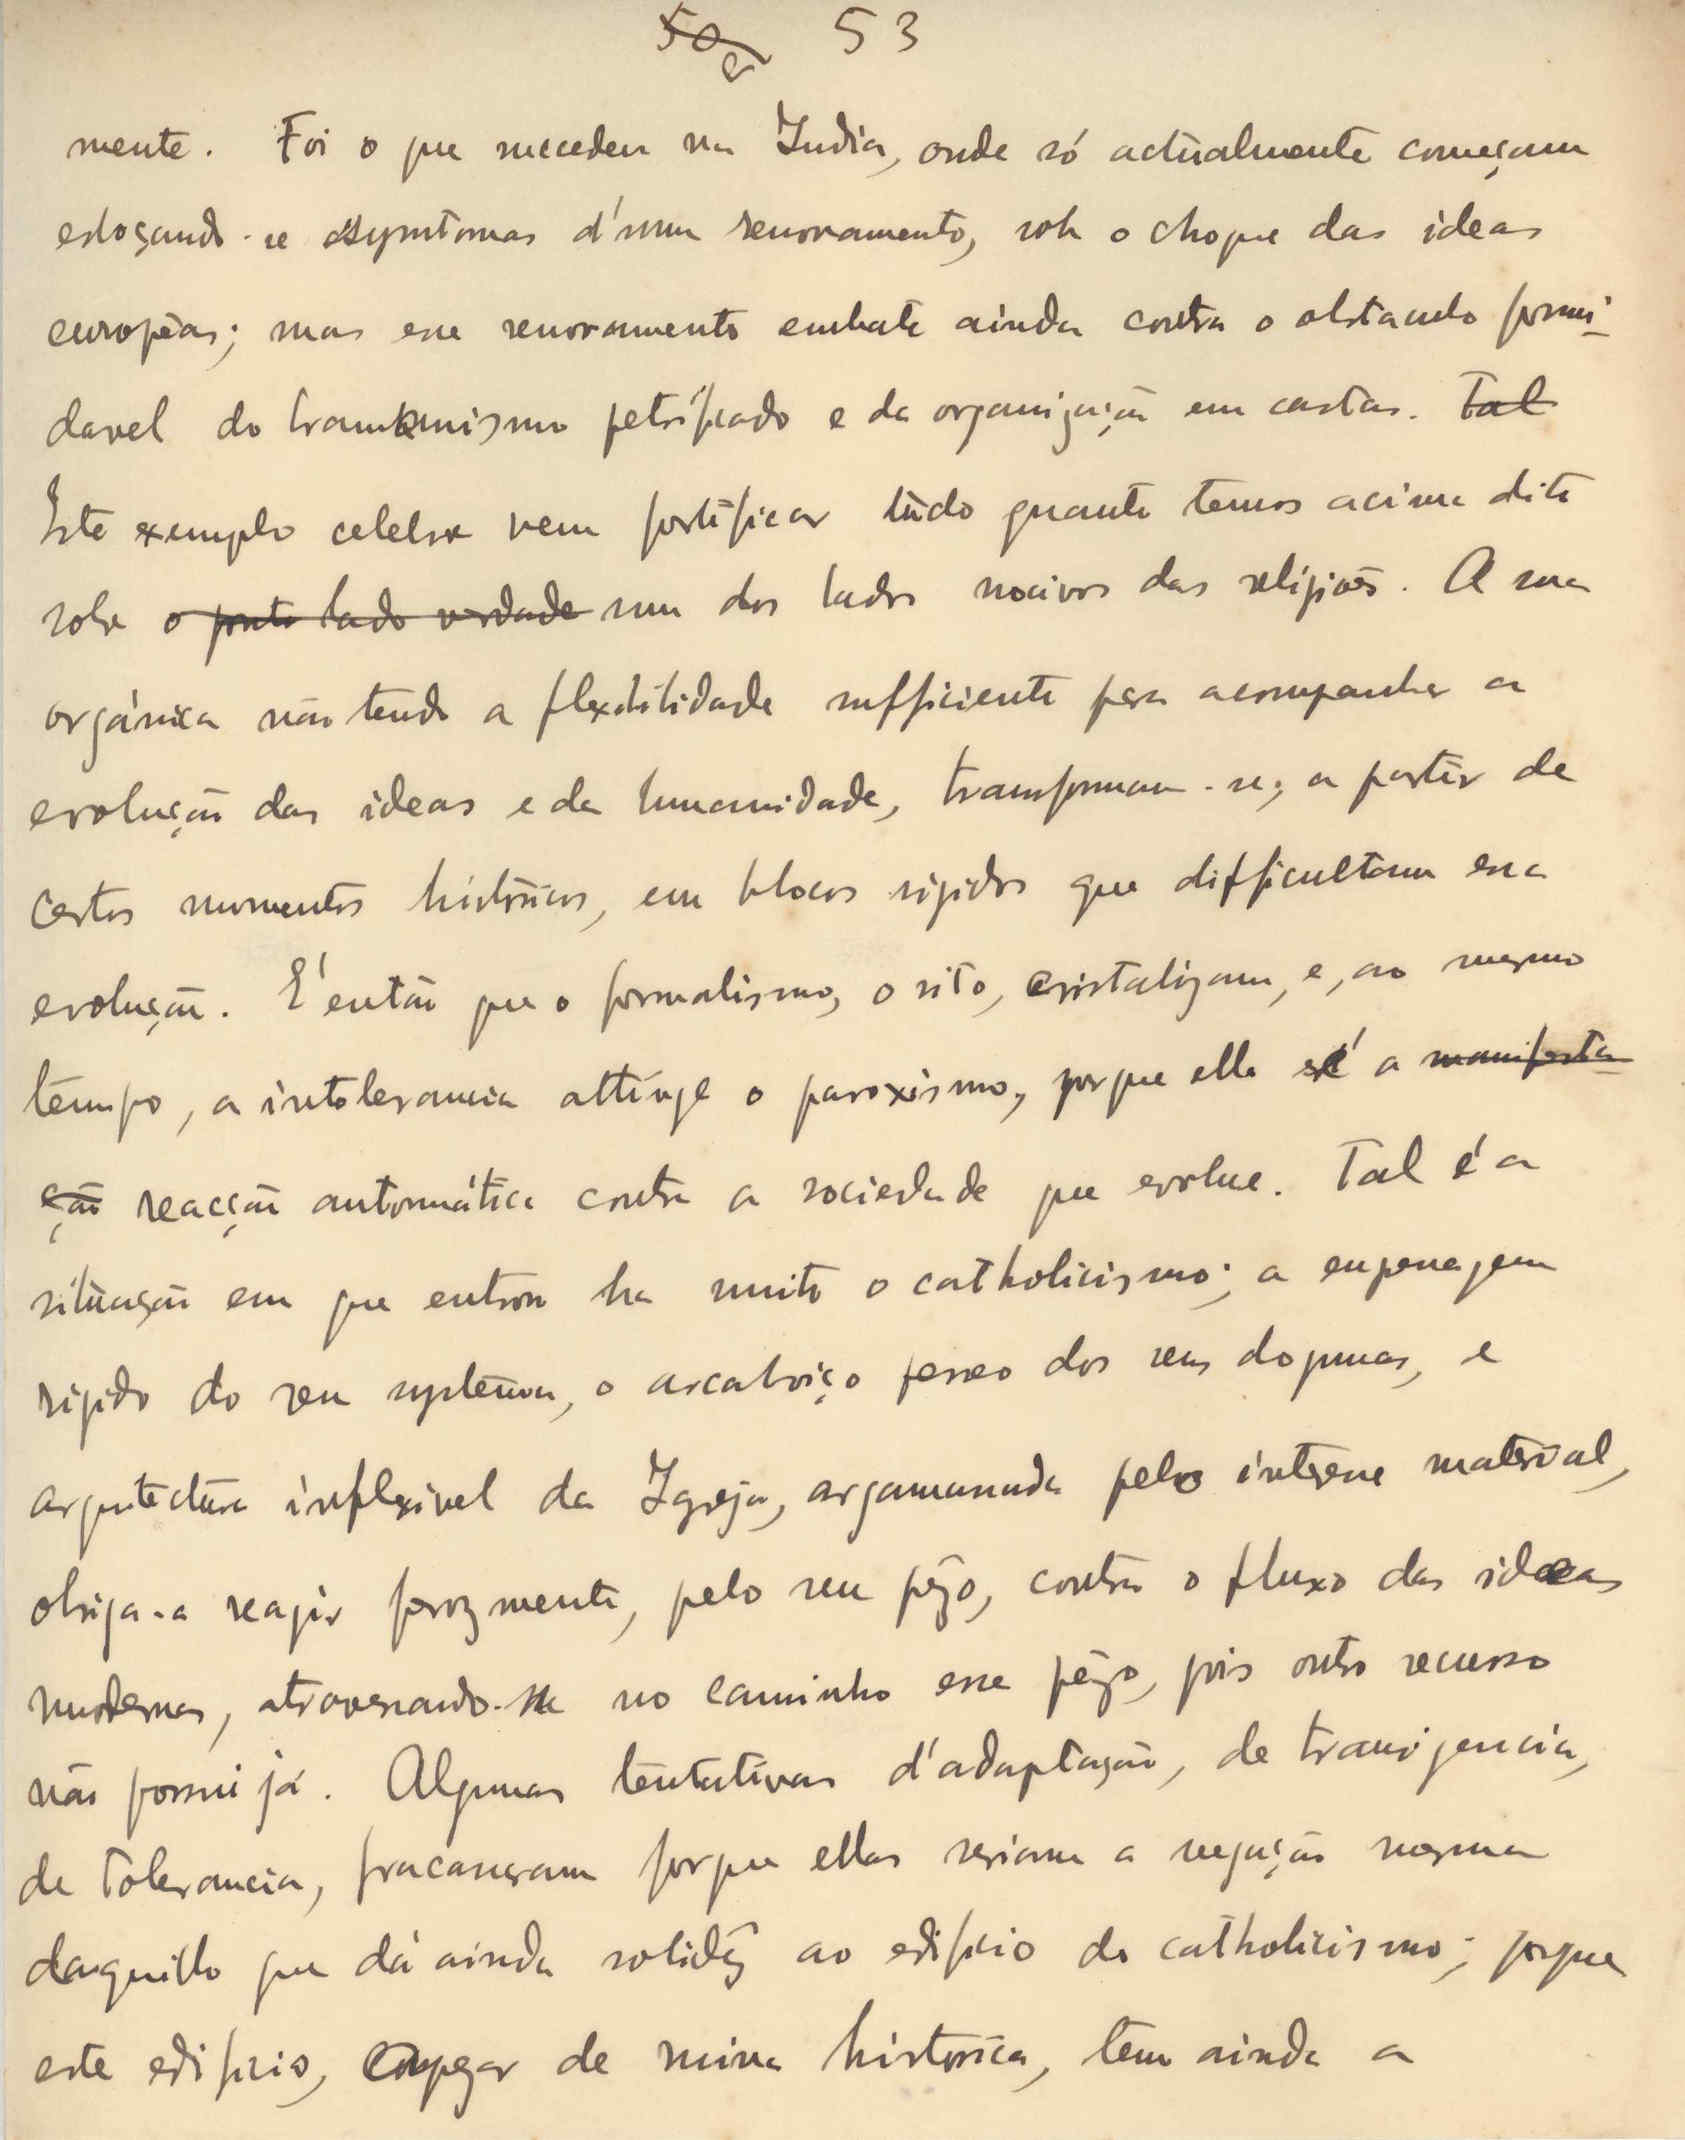 53
mente. Foi o que succedeu na India, onde só actualmente começam
esboçando-se symtomas d'um renovamento, sob o choque das ideas
européas; mas esse renovamento embate ainda contra o obstaculo formi-
davel do bramanismo petrificado e da organização em castas. Tal
Este exemplo celebre vem fortificar tudo quanto temos acima dito
sobre o ponto lado verdade um dos lados nocivos das religiões. A sua
orgánica não tendo a flexibilidade sufficiente para acompanhar a
evolução das ideas e da humanidade, transformam-se, a partir de
certos momentos históricos, em blocos rigidos que difficultam essa
evolução. É então que o formalismo, o rito, cristalizam, e, ao mesmo
tempo, a intolerancia attinge o paroxismo, porque ella é a manifesta-
ção reacção automática contra a sociedade que evolue. Tal é a
situação em que entrou ha muito o catholicismo; a engenagem
rigida do seu systema, o arcaboiço ferreo dos seus dogmas, e
arquitectura inflexivel da Igreja, argamassada pelo interesse material,
obriga-a reagir ferozmente, pelo seu pêzo, contra o fluxo das ideas
modernas, atravessando-se no caminho esse pêzo, pois outro recurso
não possui já. Algumas tentativas d'adaptação, de transigencia,
de tolerancia, fracassaram porque ellas seriam a negação mesma
daquillo que dá ainda solidêz ao edificio do catholicismo; porque
este edificio, apezar de ruina historica, tem ainda a